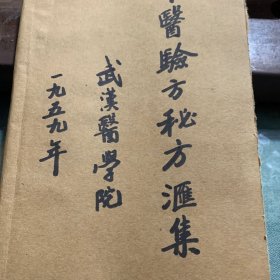 醫驗方秘方滙集
武漢醫學院
一九五九年